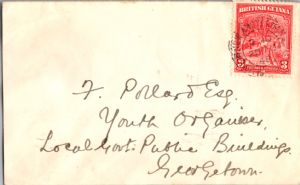 BRITISH GUIANA
3 3
F. Pollard Esq.
Youth Organiser,
Local Govt. Public Buildings.
Georgetown.